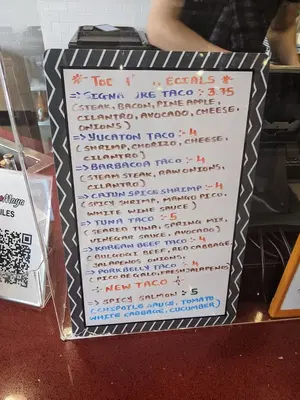 * TOC ECIALS *
⇒ SIGNA RE TACO :- 3.75
(STEAK, BACON, PINE APPLE,
CILANTRO, AVOCADO, CHEESE,
ONIONS)
⇒ YUCATON TACO :- 4
(SHRIMP, CHORIZO, CHEESE,
CILANTRO)
⇒ BARBACOA TACO :- 4
(STEAM STEAK, RAW ONIONS,
CILANTRO)
⇒ CAJUN SPICE SHRIMP :- 4
(SPICY SHRIMP, MANGO PICO,
WHITE WINE SAUCE)
⇒ TUNA TACO :- 5
(SEARED TUNA, SPRING MIX,
VINEGAR SAUCE, AVOCADO)
⇒ KOREAN BEEF TACO :- 4
(BULGOGI BEEF, RED CABBAGE,
JALAPENOS ONIONS,
⇒ PORKBELLY TACO :- 4
(PICO DE GALLO, FRESH JALAPENO)
NEW TACO
⇒ SPICY SALMON :- 5
(CHIPOTLE SAUCE, TOMATO
WHITE CABBAGE, CUCUMBER)
ULES